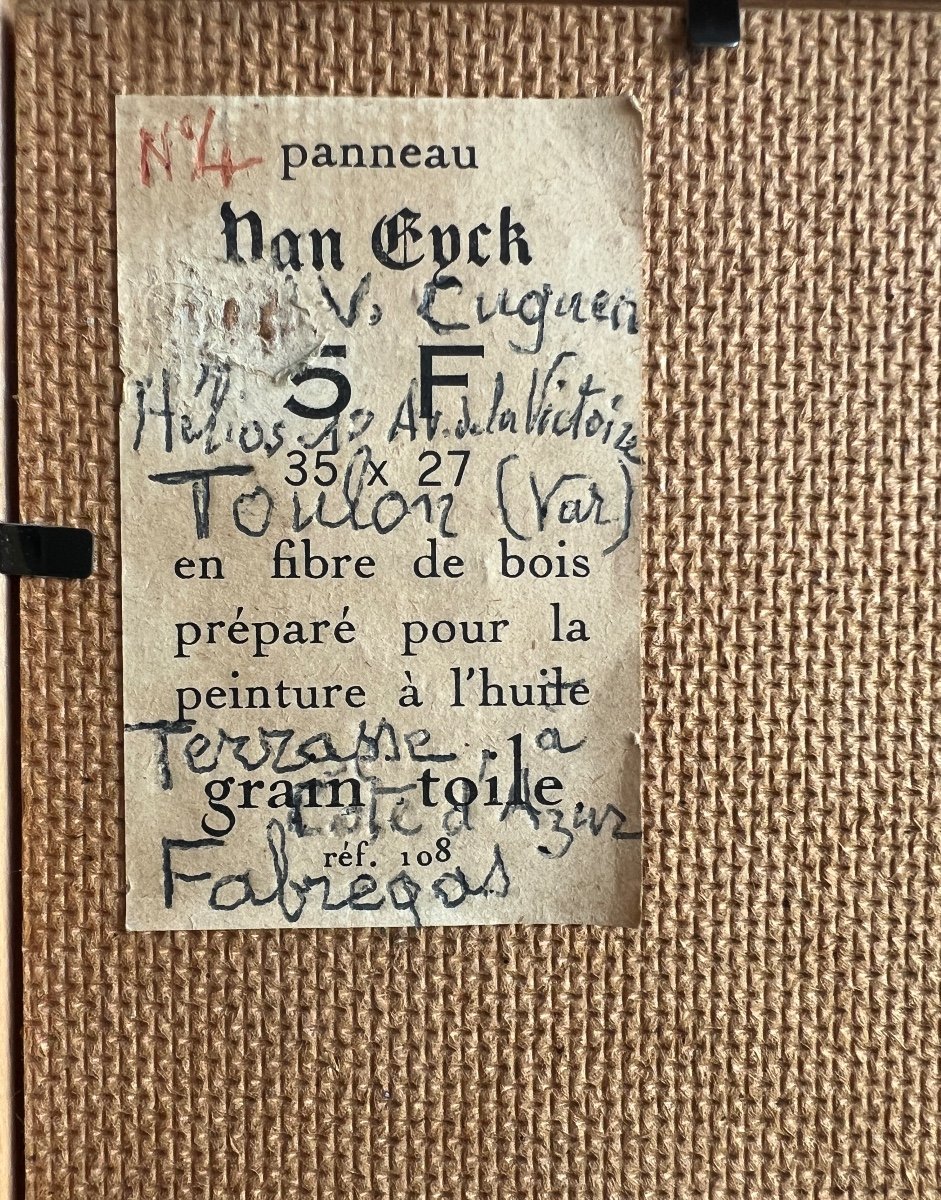 N°4 panneau
Van Eyck
V. Cuguen
5 F
Hélios Av. de la Victoire
35 x 27
Toulon (Var)
en fibre de bois
préparé pour la
peinture à l'huile
Terrasse a
grain toile
Côte d'Azur
réf. 108
Fabregas